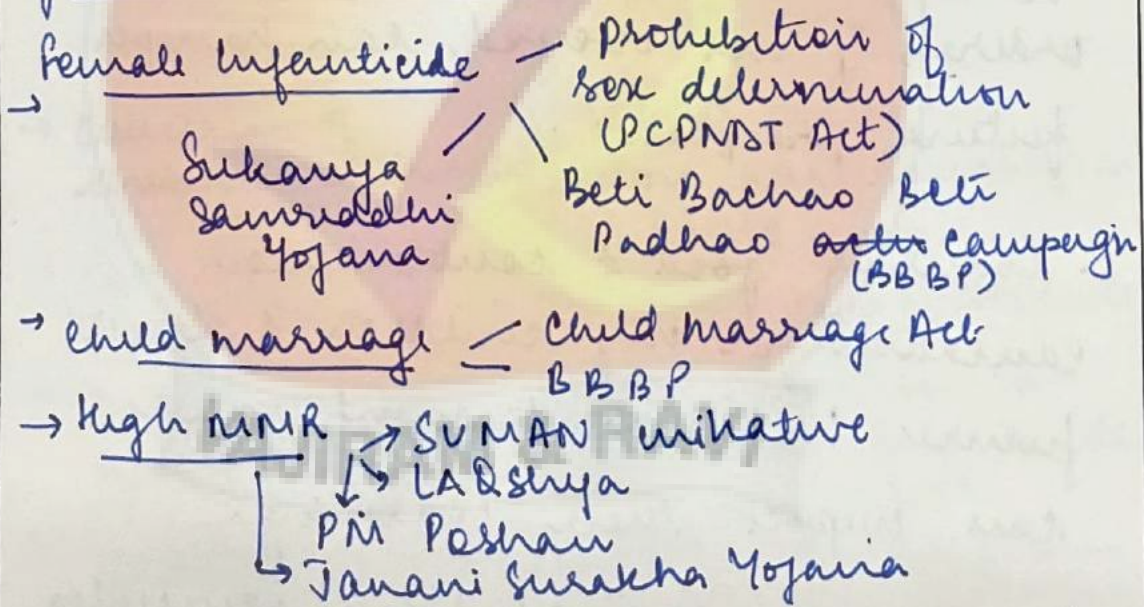 Female Infanticide — Prohibition of
→ sex determination
(PCPNDT Act)
Sukanya
Samriddhi
Yojana
Beti Bachao Beti
Padhao campaign
(BBBP)
→ Child marriage — Child Marriage Act
BBBP
→ High MMR → SUMAN initiative
→ LAQshya
PM Poshan
→ Janani Suraksha Yojana